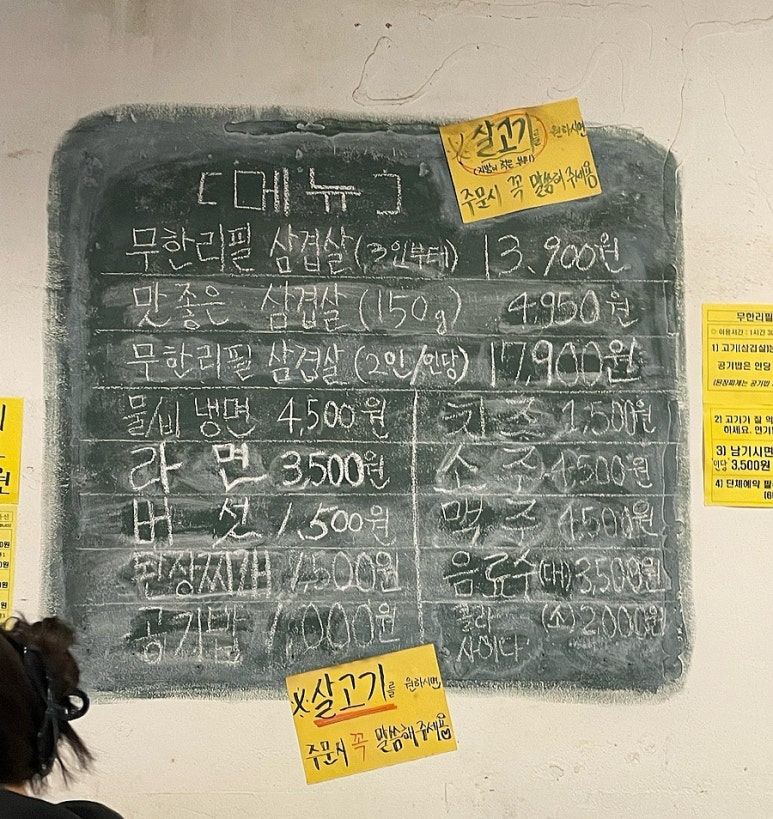 ※살고기를 원하시면
(지방이 적은 부위)
주문시 꼭 말씀해 주세요
[메뉴]
무한리필 삼겹살(3인부터) 13,900원
맛좋은 삼겹살(150g) 4,950원
무한리필 삼겹살(2인/인당) 17,900원
물,비 냉면 4,500원
치즈 1,500원
라면 3,500원
소주 4,500원
버섯 1,500원
맥주 4,500원
된장찌개 1,500원
음료수(대) 3,500원
공기밥 1,000원
콜라 (소) 2,000원
사이다
※살고기를 원하시면
주문시 꼭 말씀해주세요
무한리필
1) 고기(삼겹살)는
공기밥은 인당
2) 고기가 질
하세요.
3) 남기시면
인당 3,500원
4) 단체예약
원